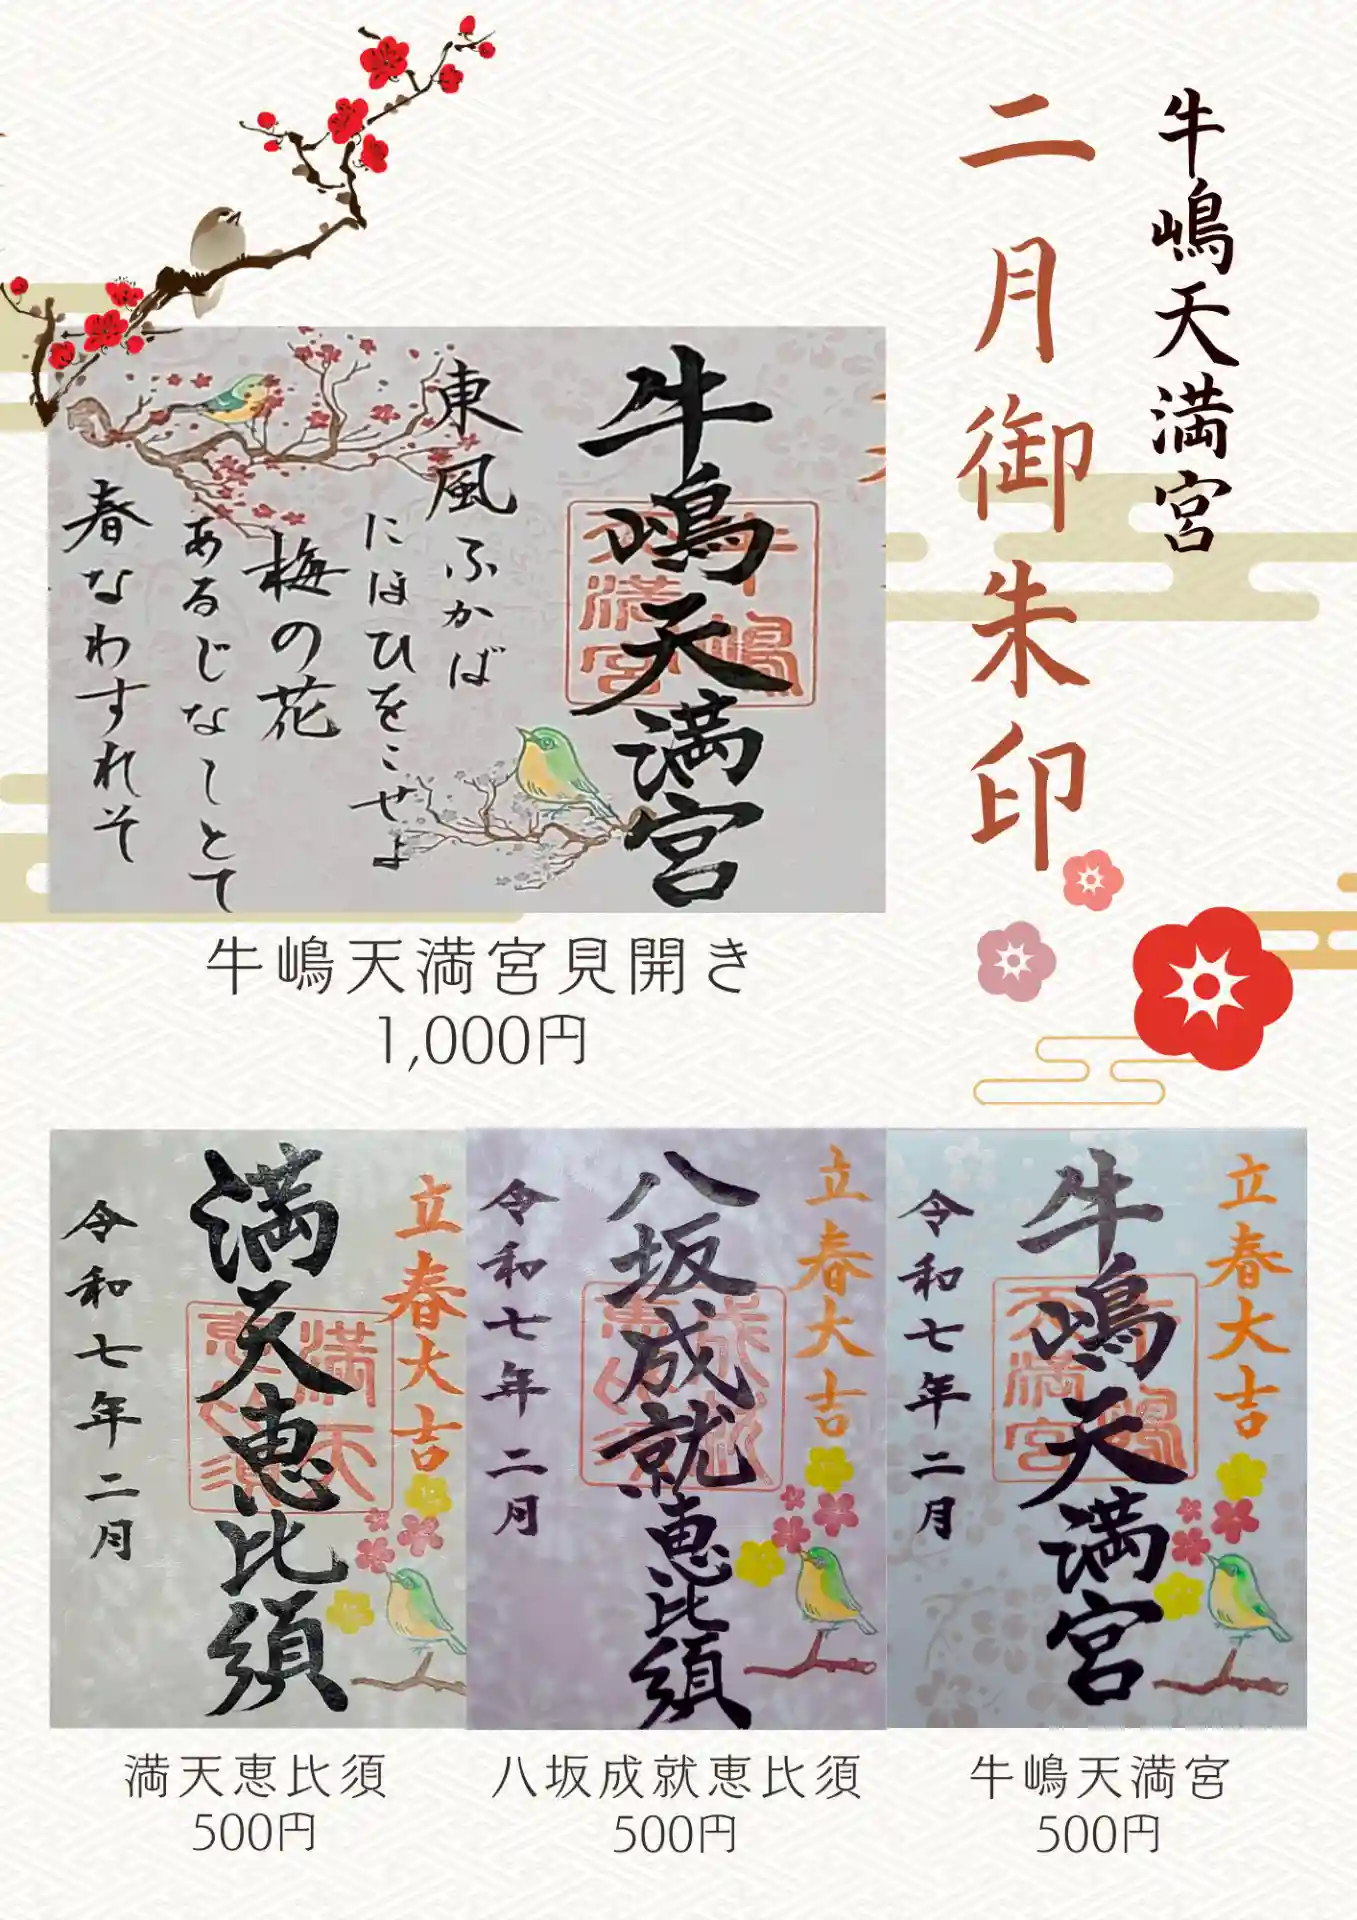 牛嶋天満宮
二月御朱印
牛嶋天満宮
牛嶋天満宮
東風ふかば
にほひをこせよ
梅の花
あるじなしとて
春なわすれそ
牛嶋天満宮見開き
1,000円
立春大吉
牛嶋天満宮
牛嶋天満宮
令和七年二月
立春大吉
八坂成就恵比須
成就
恵比須
令和七年二月
立春大吉
満天恵比須
満天
恵比須
令和七年二月
満天恵比須
500円
八坂成就恵比須
500円
牛嶋天満宮
500円